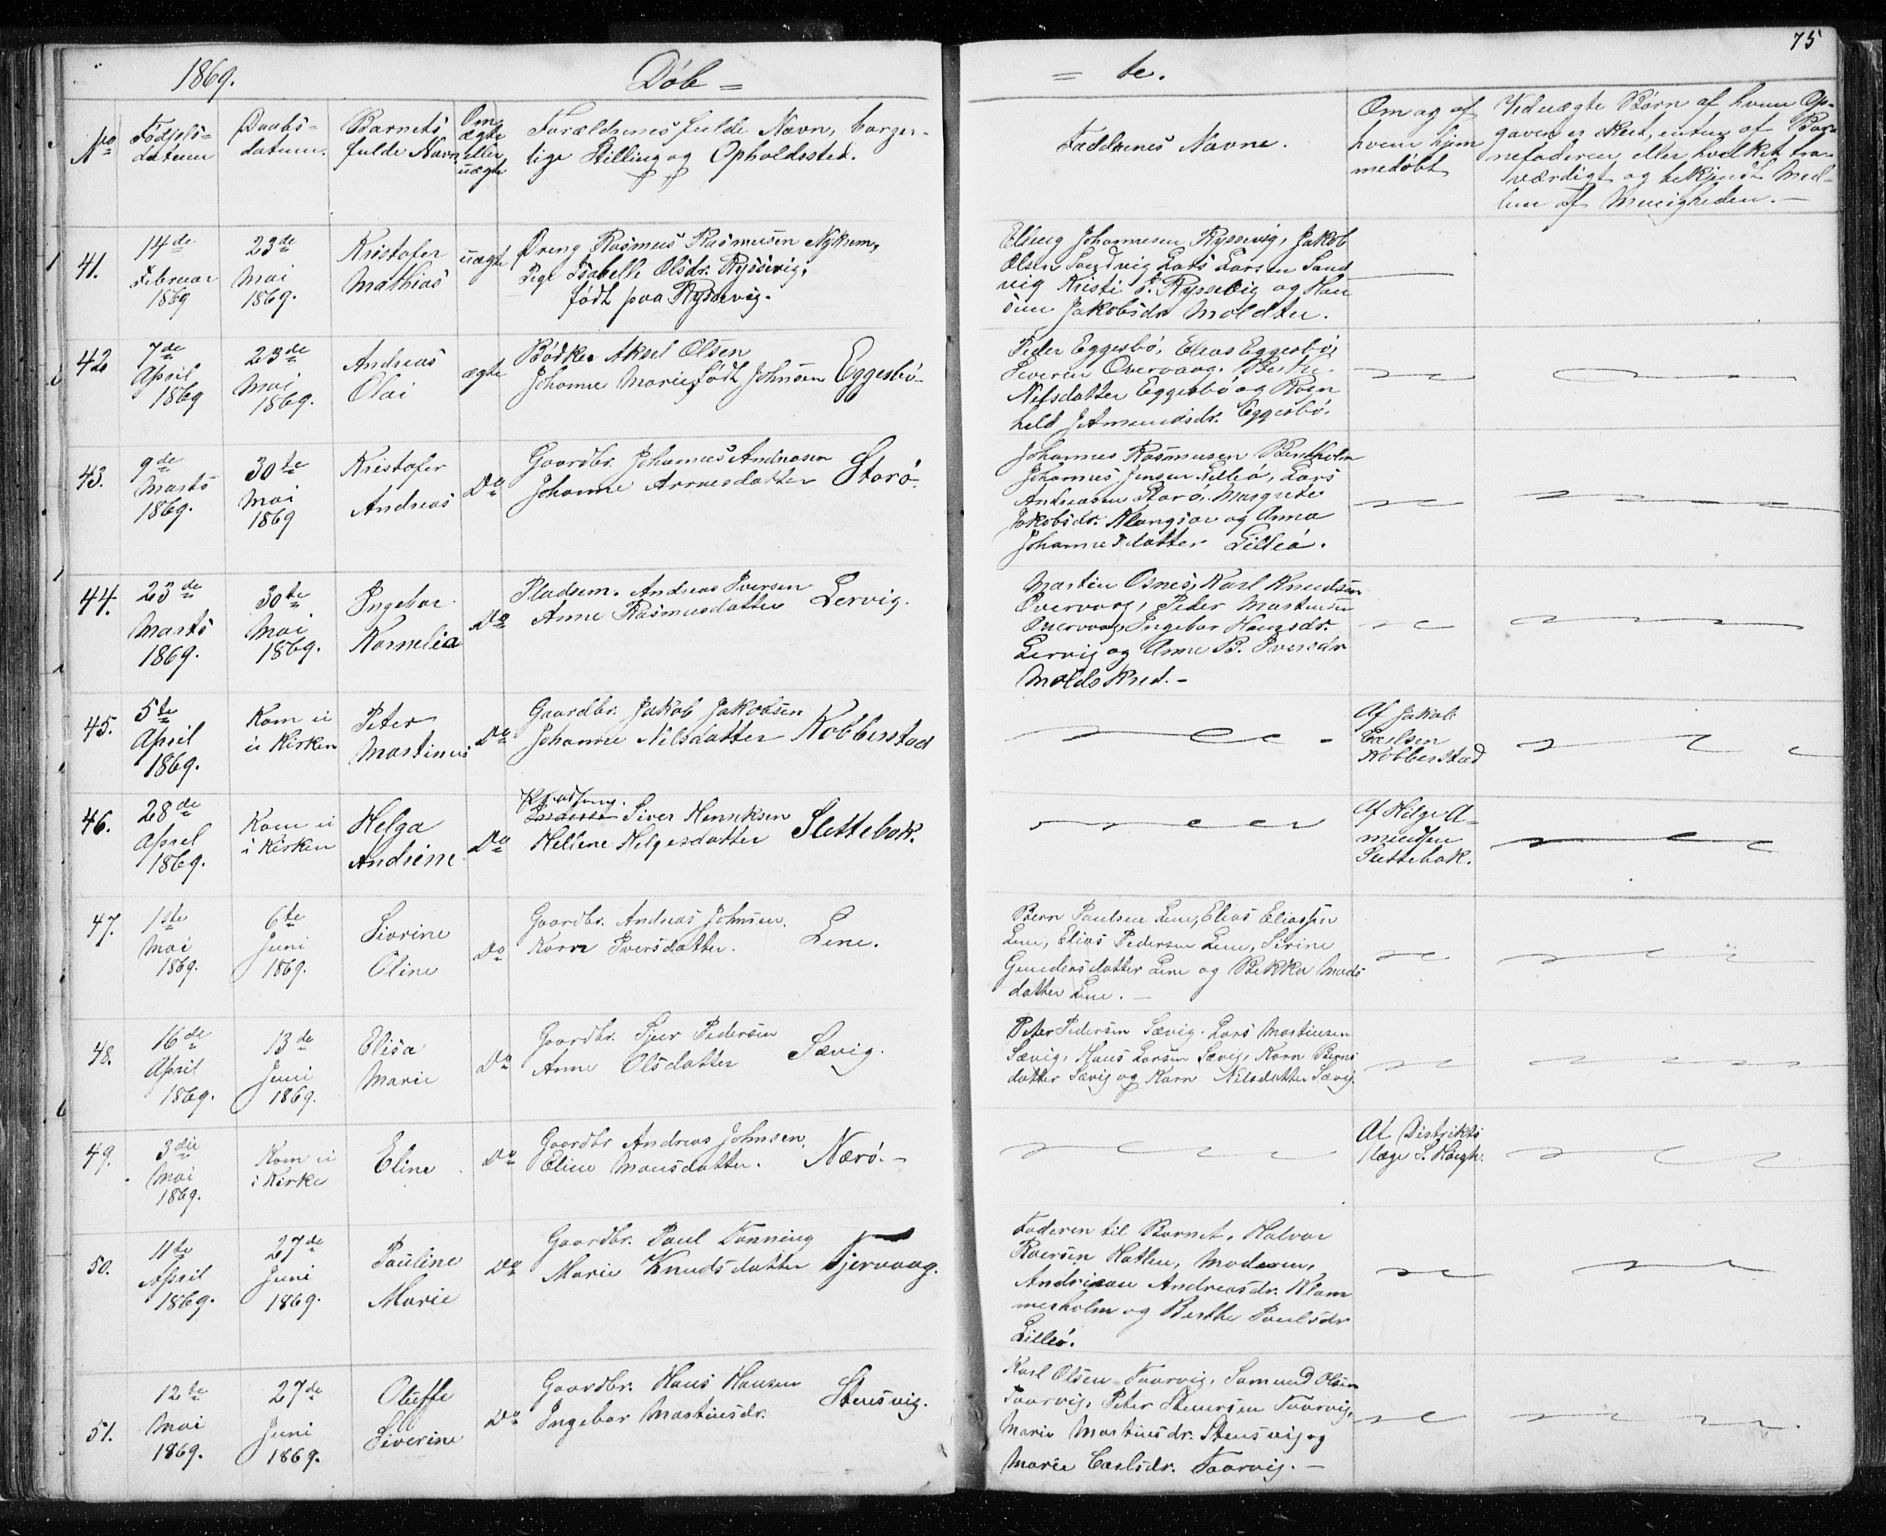 75
1869. Döb = = te.
No
Födsels-
datum
Daabs-
datum.
Barnets
fulde Navn
Om
ægte
eller
uægte
Forældrenes fulde Navn, borger-
lige Stilling og Opholdssted.
Faddernes Navne.
Om og af
hvem hjem
medöbt
Ved uægte Börn af hvem Op-
gaven er skeet, enten af Bar-
nefaderen eller hvilket tro-
værdigt og bekjendt Med-
lem af Menigheden. -
41.
14de
Februar
1869
23de
Mai
1869.
Kristofer
Mathias
uægte
Dreng Rasmus Rasmusen Myhrem,
Pige Isabelle Olsdr. Ryssevig,
födt paa Ryssevig.
Elling Johannesen Ryssevig, Jakob
Olsen Sandvig Lars Larsen Sand
vig Kristi Ryssevig og Han
sine Jakobsdr. Moldtu.
42
7de
April
1869
23de
Mai
1869.
Andreas
Olai
ægte
Bödker Aksel Olsen
Johanne Marie födt Johnsen Eggesbö-
Peder Eggesbö, Elias Eggesbö,
Severin Overvaag. Berthe
Nilsdatter Eggesbö og Ragn
hild J Amundsdr. Eggesbö.
43.
9de
Marts
1869.
30te
Mai
1869
Kristofer
Andreas
Do
Gaardbr. Johannes Andreasen
Johanne Arnesdatter Storö.
Johannes Rasmusen Bentholm
Johannes Jensen Lilleö, Lars
Andreasen Storö. Margrete
Jakobsdr. og Anna
Johannesdatter Lilleö.
44.
23de
Marts
1869.
30te
Mai
1869.
Ingebor
Kornelia
Do
Pladsm. Andreas Iversen
Anne Rasmusdatter Lervig.
Martin Osnes, Karl Knudsen
Overvaag, Peder Martinusen
Overvaag, Ingebor Hansdr.
Lervig og Anne B. Iversdr
Moldskred. -
45.
5te
April
1869.
Kom ei
ii Kirken
Peter
Martinus
Do
Gaardbr. Jakob Jakobsen
Johanne Nilsdatter Kobberstad
Af Jakob
Carlsen
Kobberstad
46.
28de
April
1869.
Kom ei
i Kirken
Helga
Andrine
Do
Siver Henriksen
Helene Helgesdatter Slettebak.
Af Helge A-
mundsen
Slettebak.
47.
1ste
Mai
1869.
6te
Juni
1869.
Sivrine
Oline
Do
Gaardbr. Andreas Johnsen.
Karn Iversdatter. Lene.
Bern Paulsen Lene, Elias Eliassen
Lene, Elias Pedersen Lene, Sirine
Gundersdatter Lene og Bekka Mads
datter Lene. -
48.
16de
April
1869.
13de
Juni
1869.
Elisa
Marie
Do
Gaardbr. Sjur Pedersen
Anne Olsdatter Sævig.
Peter Pedersen Sævig. Lars Martinusen
Sævig, Hans Larsen Sævig, Karn Berns
datter Sævig og Karn Nilsdatter Sævig.
49.
3die
Mai
1869.
Kom ei
i Kirke
Eline
Do
Gaardbr Andreas Johnsen.
Eline Monsdatter. Nærö. -
Af Distrikts
læge S. Höegh.
50.
11te
April
1869.
27de
Juni
1869.
Pauline
Marie
Do
Gaardbr. Paul Tonning
Marie Knudsdatter Tjervaag.
Faderen til Barnet, Halvor
Roersen Hatlen, Moderen,
Andriane Andreasdr. Klom
mesholm og Berthe Paulsdr
Lilleö.
51.
12te
Mai
1869.
27de
Juni
1869.
Oluffe
Elli
Siverine
Do
Gaardbr. Hans Hansen
Ingebor Martinsdr. Stensvig.
Karl Olsen Taarvig, Samund Olsen
Taarvig, Peter Steuersen Taarvig,
Marie Martinsdr. Stensvig og
Marie Carlsdr. Taarvig. -